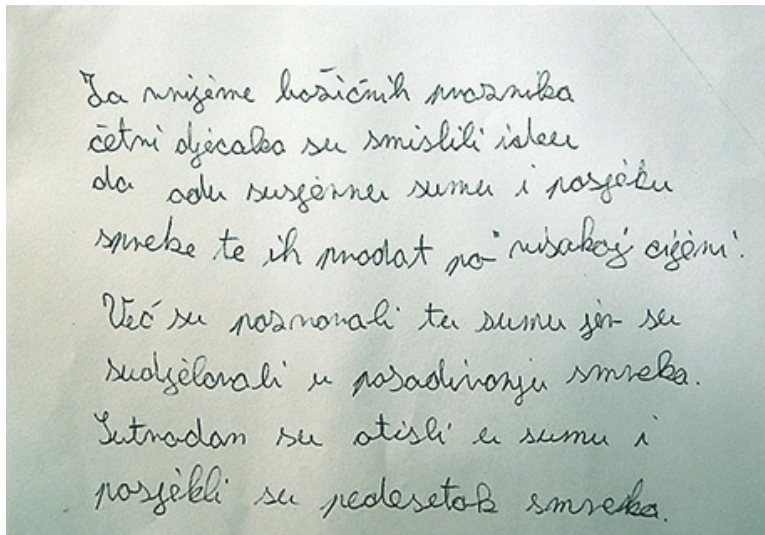 Za vrijeme božićnih praznika
četri dječaka su smislili ideu
da odu susjennu sumu i posjeku
smreke te ih prodat po visakoj cijeni.
Već su poznavali tu sumu jer su
sudjelovali u posađivanju smreka.
Sutradan su otisli u sumu i
posjekli su pedesetak smreka.